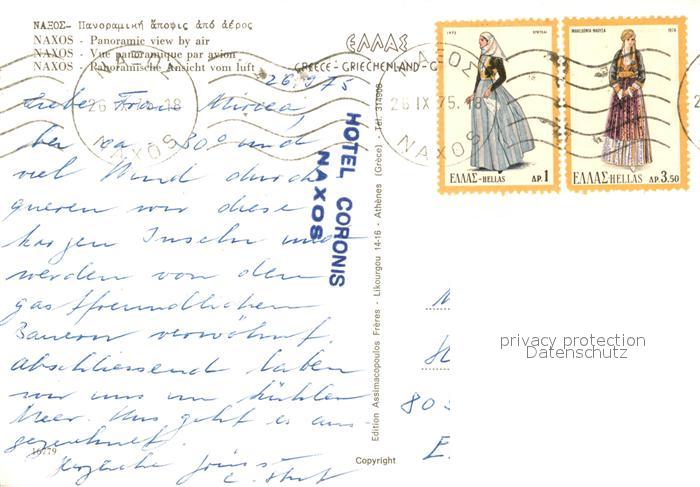 ΝΑΞΟΣ- Πανοραμική ἄποψις ἀπό ἀέρος
NAXOS - Panoramic view by air
NAXOS - Vue panoramique par avion
NAXOS - Panoramische Ansicht vom luft
ΕΛΛΑΣ
GREECE-GRIECHENLAND-G
26.9.75
Liebe Frau Mircea,
bei ca. 30° und
viel Wind durch
queren wir diese
kargen Inseln und
werden von den
gastfreundlichen
Bauern verwöhnt.
Abschliessend haben
wir uns im kühlen
Meer. Uns geht es aus-
gezeichnet.
Herzliche Grüsse
16779
HOTEL CORONIS
NAXOS
Edition Assimacopoulos Frères - Likourgou 14-16 - Athènes (Grèce) - Tél. 314908
Copyright
ΝΑΞΟΣ
26 IX 75. 18
NAXOS
ΝΑΞΟΣ
26 IX 75. 18
NAXOS
ΕΛΛΑΣ-HELLAS ΔΡ. 1
ΜΑΚΕΔΟΝΙΑ ΝΑΟΥΣΑ 1974
ΕΛΛΑΣ-HELLAS ΔΡ. 3.50
M
H
80
E.
privacy protection
Datenschutz